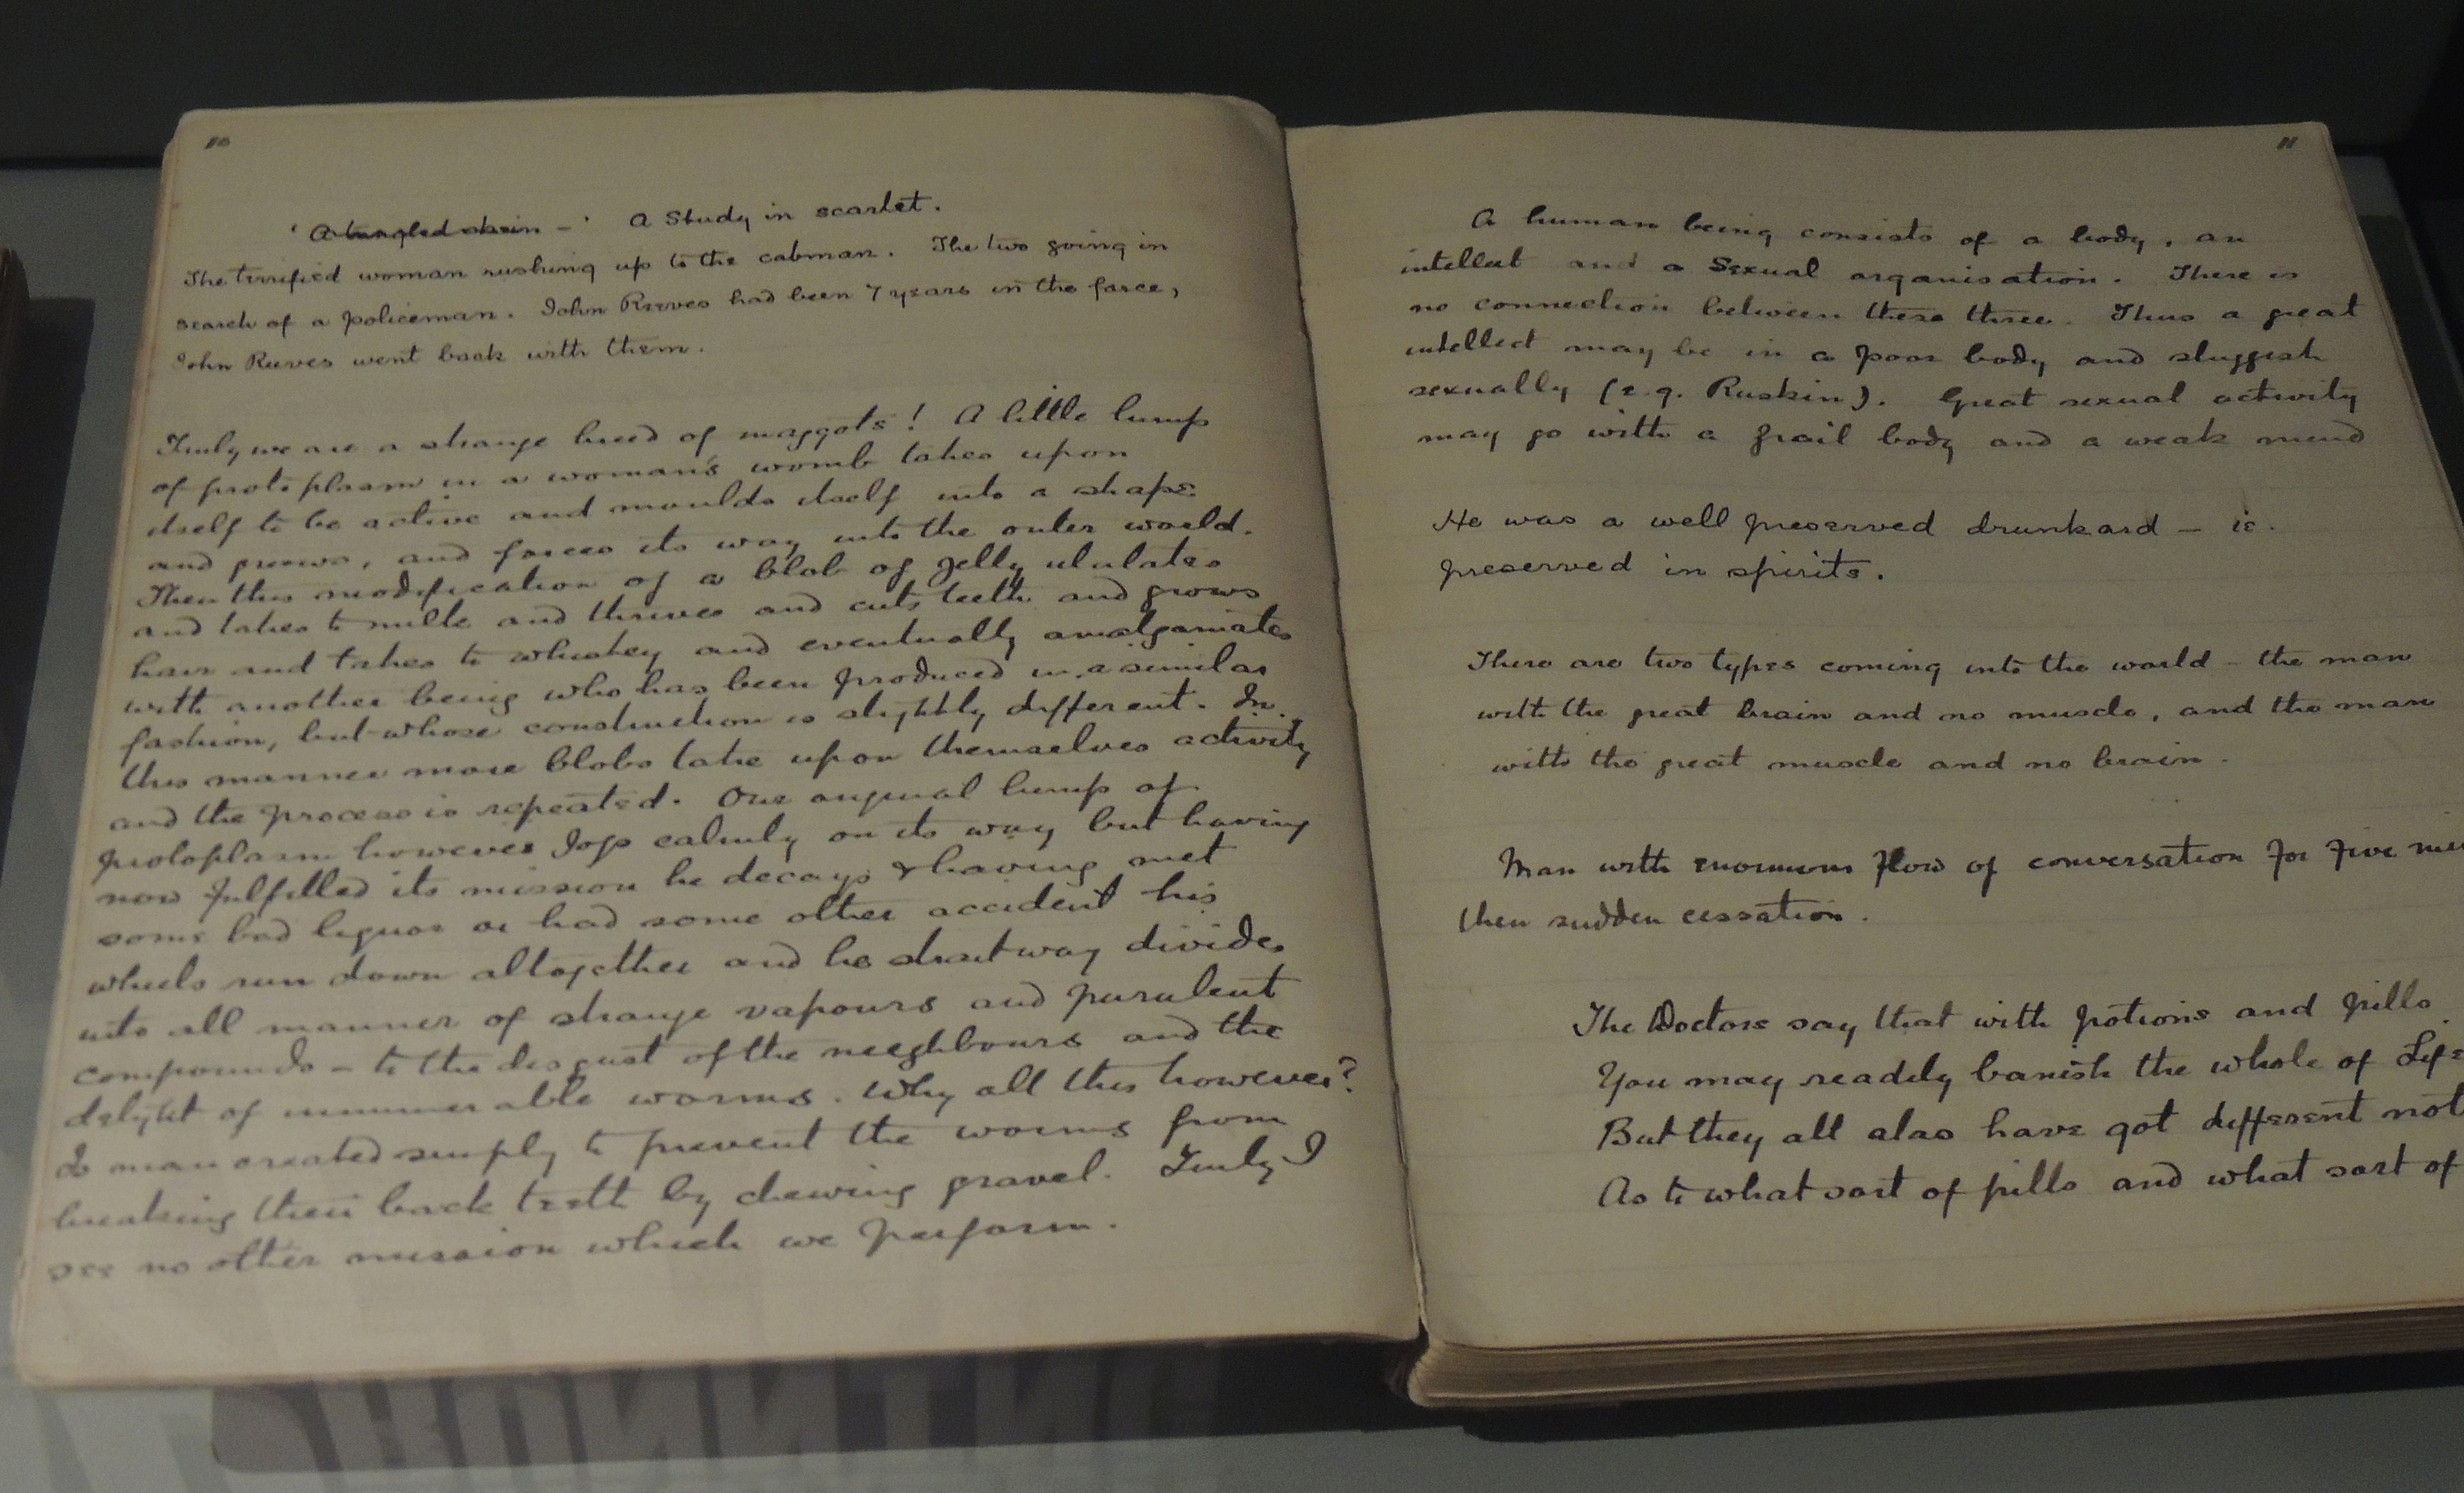 10
' A tangled skein - ' A Study in scarlet.
The terrified woman rushing up to the cabman. The two going in
search of a policeman. John Reeves had been 7 years in the force,
John Reeves went back with them.
Truly we are a strange breed of maggots! A little lump
of protoplasm in a woman's womb takes upon
itself to be active and moulds itself into a shape
and grows, and forces its way into the outer world.
Then this modification of a blob of jelly ululates
and takes to milk and thrives and cuts teeth and grows
hair and takes to whiskey and eventually amalgamates
with another being who has been produced in a similar
fashion, but whose construction is slightly different. In
this manner more blobs take upon themselves activity
and the process is repeated. Our original lump of
protoplasm however jogs calmly on its way but having
now fulfilled its mission he decays & having met
some bad liquor or had some other accident his
wheels run down altogether and he straitway divides
into all manner of strange vapours and purulent
compounds - to the disgust of the neeghbours and the
delight of innumerable worms. Why all this however?
Is man created simply to prevent the worms from
breaking their back teeth by chewing gravel. Truly I
see no other mission which we perform.
11
A human being consists of a body, an
intellect and a Sexual organisation. There is
no connection between these three. Thus a great
intellect may be in a poor body and sluggish
sexually (e.g. Ruskin). Great sexual activity
may go with a frail body and a weak mind
He was a well preserved drunkard - ie.
preserved in spirits.
There are two types coming into the world - the man
with the great brain and no muscle, and the man
with the great muscle and no brain.
Man with enormous flow of conversation for five
then sudden cessation.
The Doctors say that with potions and pills
You may readily banish the whole of
But they all alas have got different
As to what sort of pills and what sort of